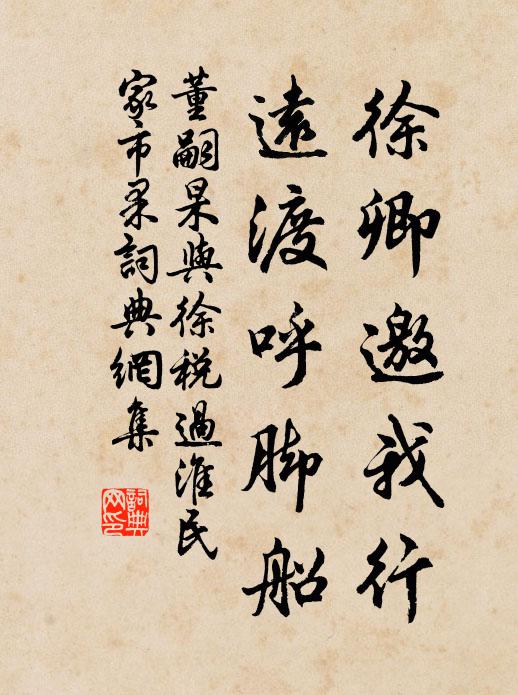 徐卿邀我行
遠渡呼脚船
董嗣杲與徐税過淮民
家市果詞典網集
詞典網印